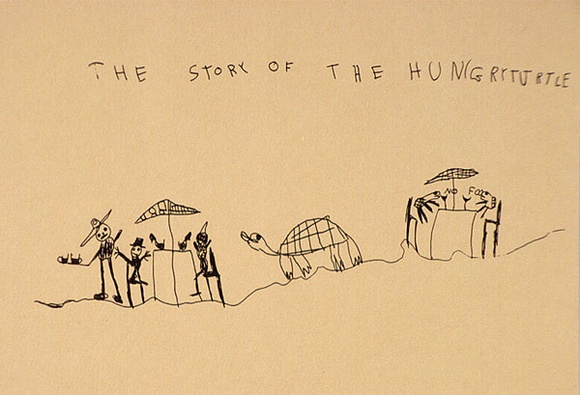 THE STORY OF THE HUNGRYTURTLE
NO FOOD